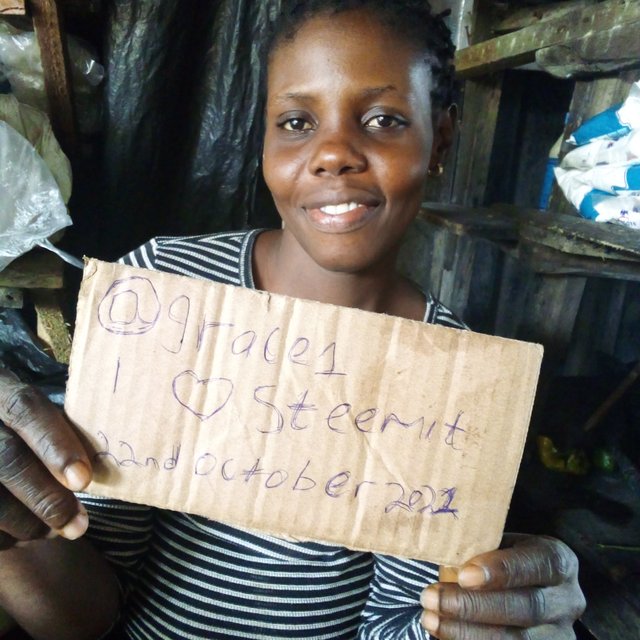 @grace1
I ♡ Steemit
22nd october 2021